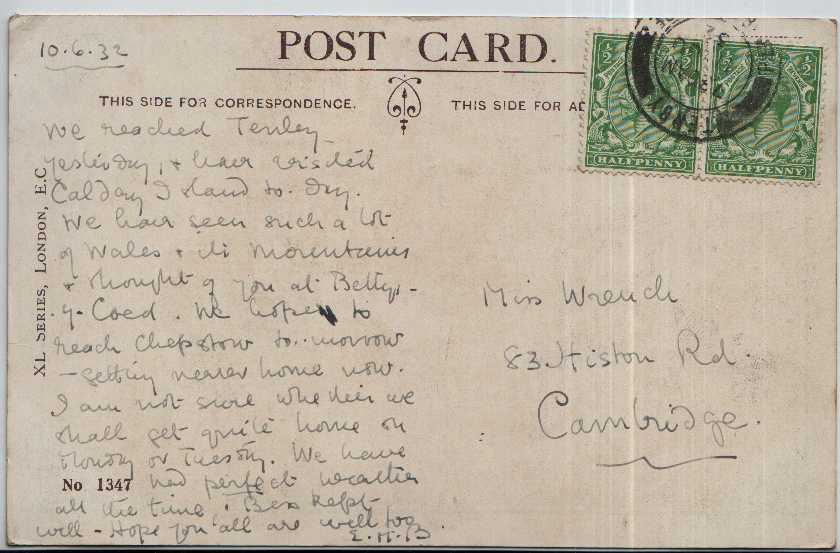 10.6.32
POST CARD.
THIS SIDE FOR CORRESPONDENCE.
THIS SIDE FOR AD
½ ½
HALFPENNY
½ ½
HALFPENNY
We reached Tenby
yesterday, & have visited
Calday Island to-day.
We have seen such a lot
of Wales & its mountains
& thought of you at Bettys-
y-Coed. We hope to
reach Chepstow to-morrow
- getting nearer home now.
I am not sure whether we
shall get quite home on
Monday or Tuesday. We have
had perfect weather
all the time. Bex kept
well - Hope you all are well too
E.H.B.
Miss Wrench
83 Histon Rd.
Cambridge.
XL SERIES, LONDON, E.C
No 1347